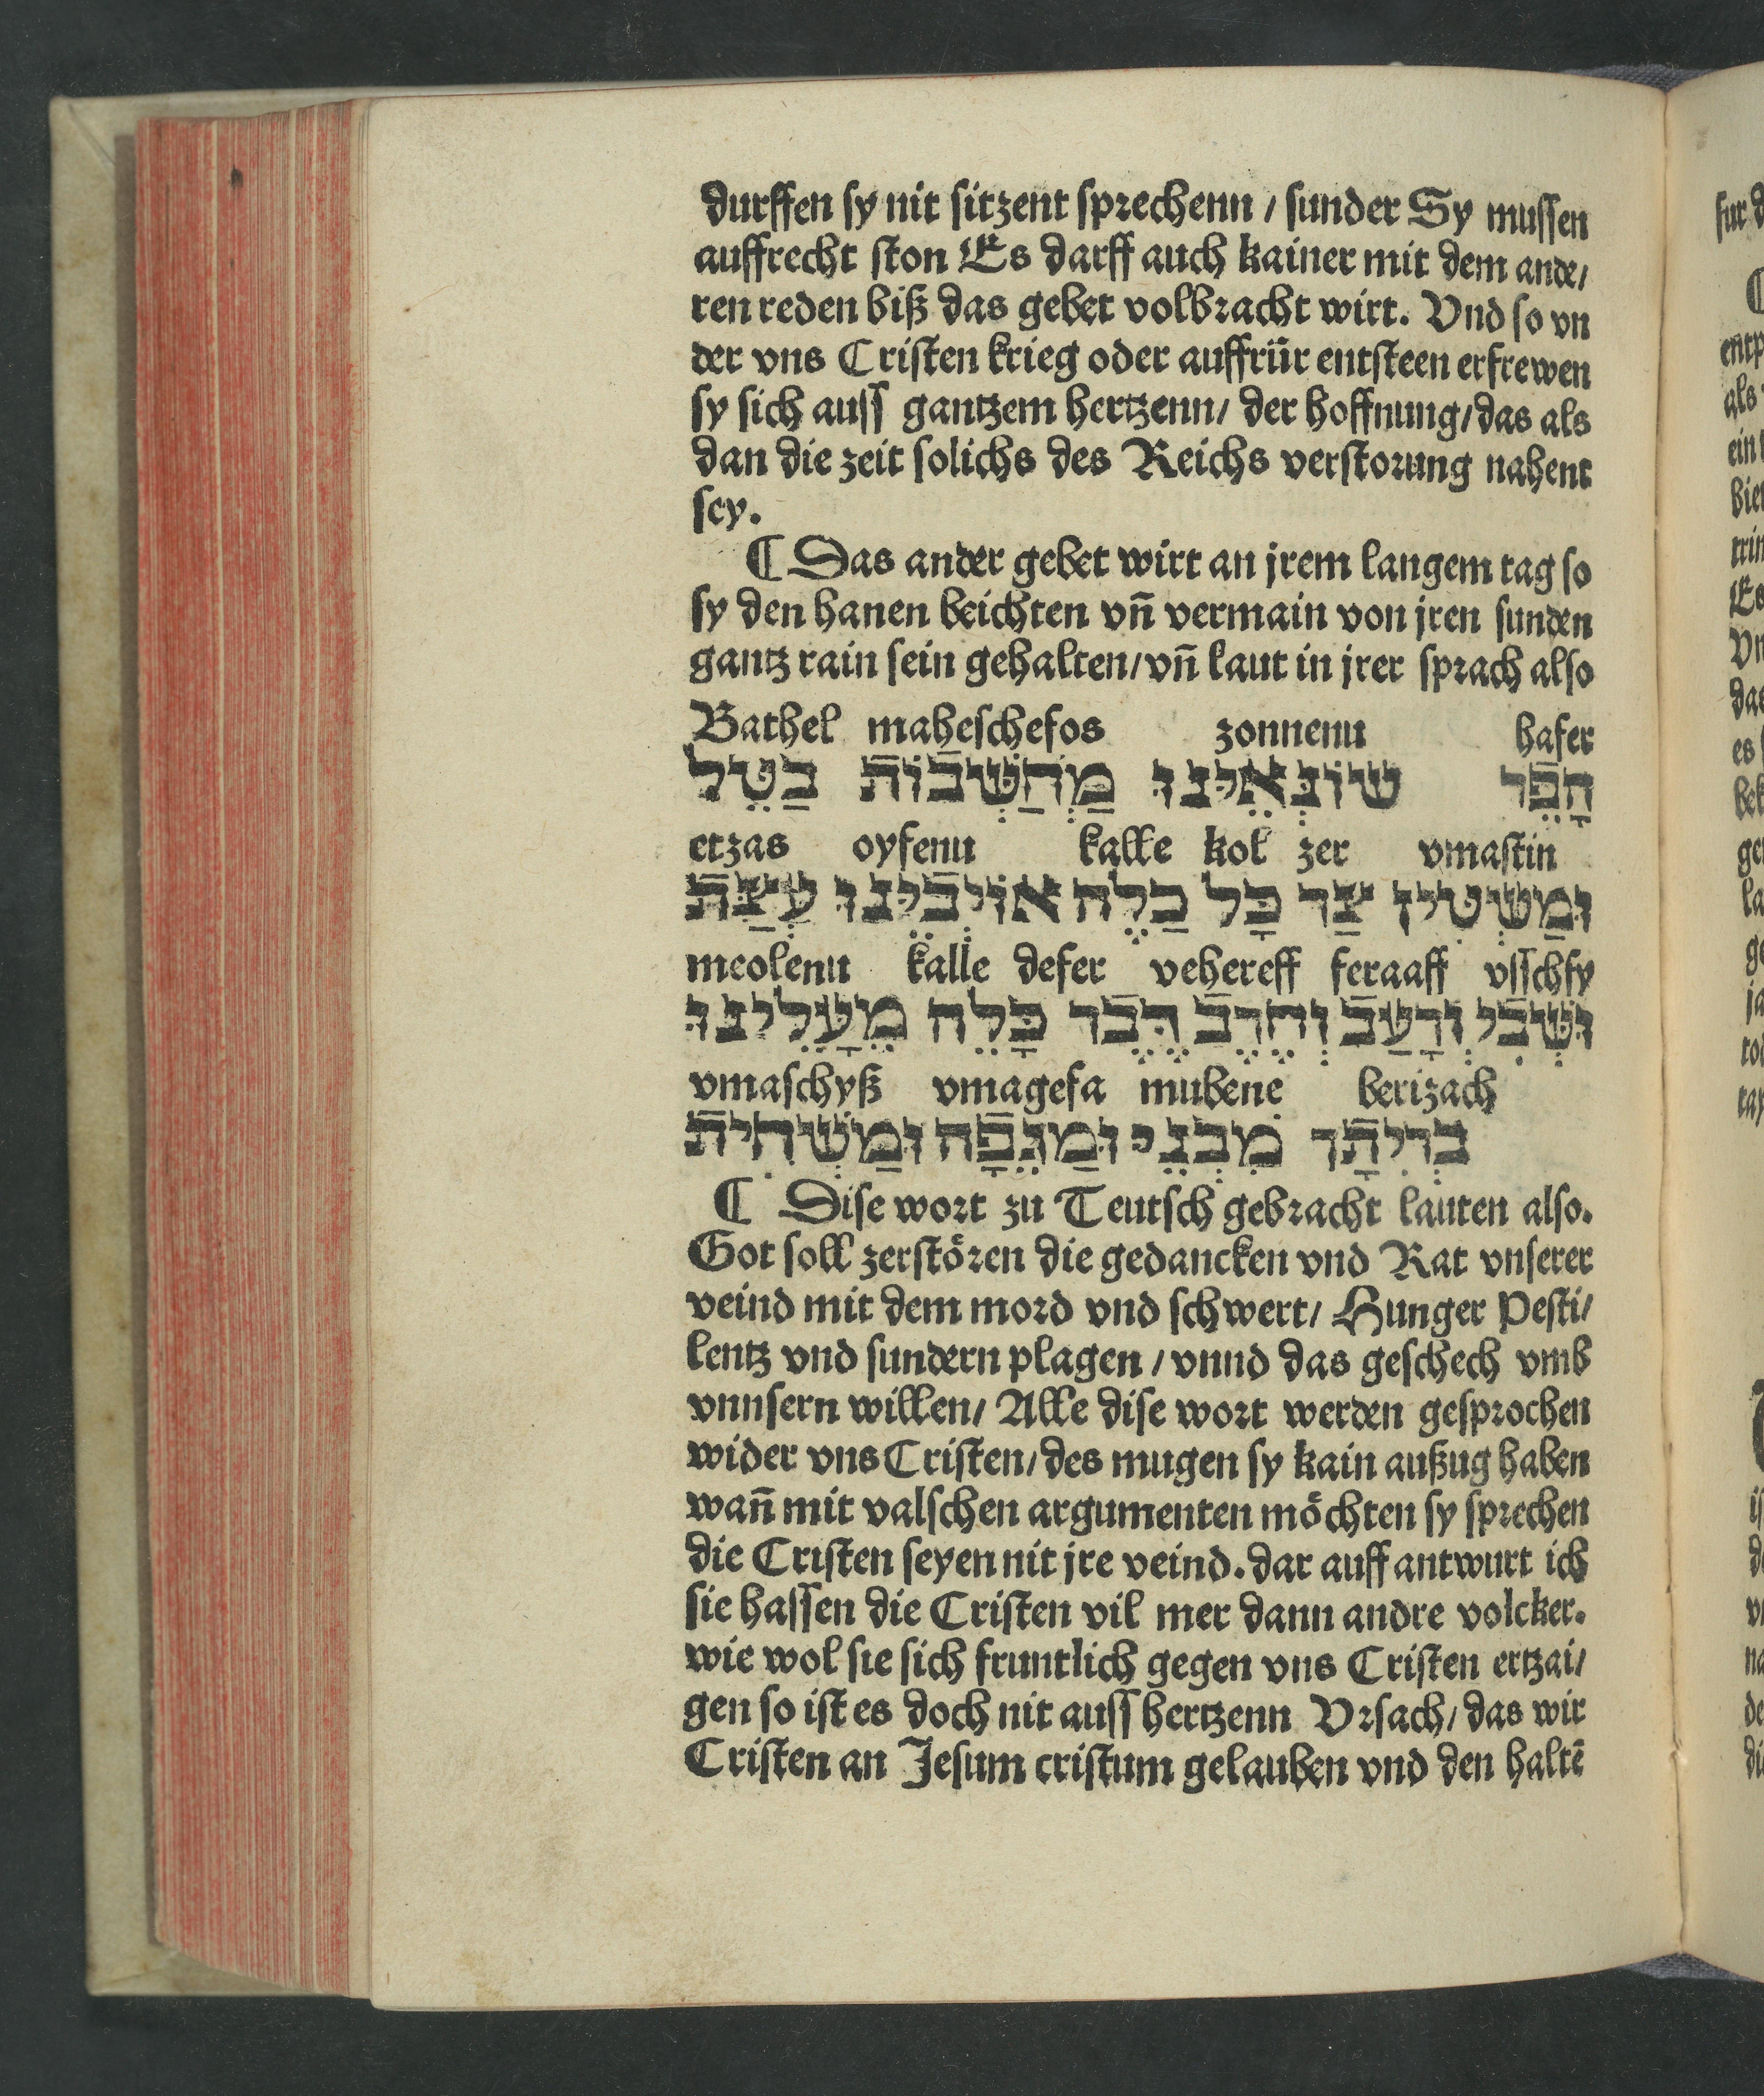 durffen sy nit sitzent sprechenn / sunder Sy mussen
auffrecht ston Es darff auch kainer mit dem ande/
ren reden biß das gebet volbracht wirt. Vnd so vn
der vns Cristen krieg oder auffrür entsteen erfrewen
sy sich auss gantzem hertzenn/ der hoffnung/ das als
dan die zeit solichs des Reichs verstorung nahent
sey.
¶ Das ander gebet wirt an jrem langem tag so
sy den hanen beichten vñ vermain von jren sunden
gantz rain sein gehalten/ vñ laut in jrer sprach also
Bathel maheschefos zonnenu hafer
הָפֵר שׂוֹנְאֵינוּ מַחְשְׁבוֹת בַטֵל
etzas oyfenu kalle kol zer vmastin
וּמַשְטִין צַר כָּל כַלֵה אוֹיְבֵינוּ עֲצַת
meolenu kalle defer vehereff feraaff vsschfy
וּשְׁבִי וְרָעַב וְחֶרֶב דֶבֶר כָּלֵה מֵעָלֵינוּ
vmaschyß vmagefa mubene berizach
בְּרִיתָךְ מִבְּנֵי וּמַגֵפָה וּמַשְׁחִית
¶ Dise wort zu Teutsch gebracht lauten also.
Got soll zerstören die gedancken vnd Rat vnserer
veind mit dem mord vnd schwert/ Hunger Pesti/
lentz vnd sundern plagen / vnnd das geschech vmb
vnnsern willen/ Alle dise wort werden gesprochen
wider vns Cristen/ des mugen sy kain außug haben
wañ mit valschen argumenten möchten sy sprechen
die Cristen seyen nit jre veind. dar auff antwurt ich
sie hassen die Cristen vil mer dann andre volcker.
wie wol sie sich fruntlich gegen vns Cristen ertzai/
gen so ist es doch nit auss hertzenn Vrsach/ das wir
Cristen an Jesum cristum gelauben vnd den haltē